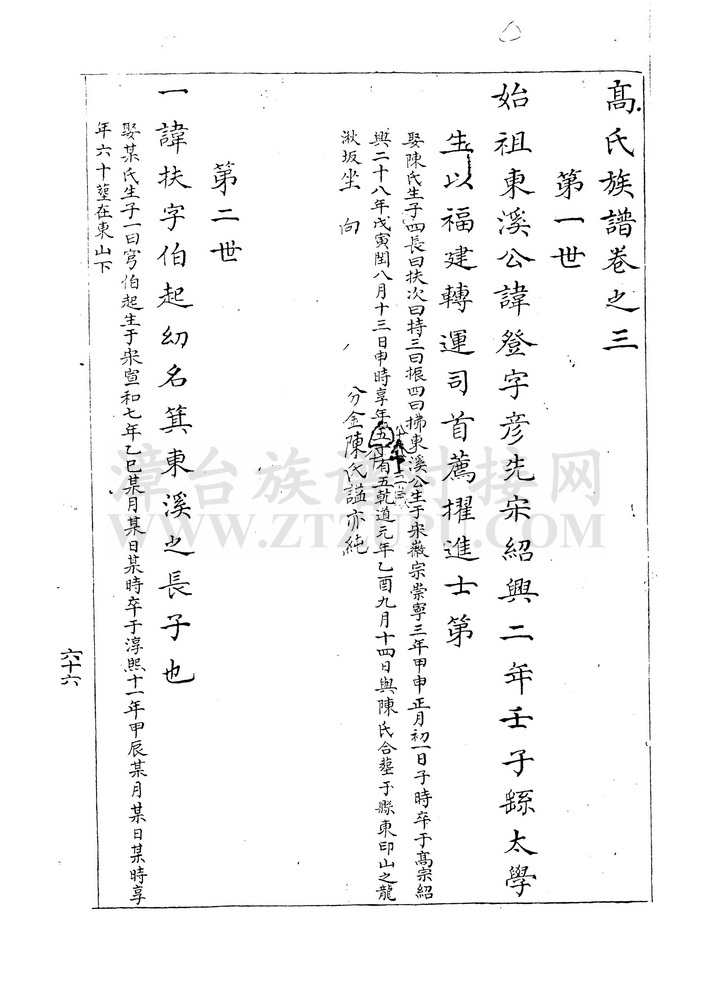 高氏族譜卷之三
第一世
始祖東溪公諱登字彥先宋紹興二年壬子繇太學
生以福建轉運司首薦擢進士第
娶陳氏生子四長曰扶次曰持三曰振四曰拂東溪公生于宋徽宗崇寧三年甲申正月初一日子時卒于髙宗紹
興二十八年戊寅閏八月十三日申時享年五十有五乹道元年乙酉九月十四日與陳氏合塟于縣東印山之龍
湫坂坐 向 分金陳氏謚亦純
第二世
一諱扶字伯起幼名箕東溪之長子也
娶某氏生子一曰穹伯起生于宋宣和七年乙巳某月某日某時卒于淳熙十一年甲辰某月某日某時享
年六十塟在東山下
六十六
漳台族谱对接网
WWW.ZTZUPU.COM